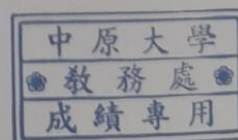 中原大學
教務處
成績專用